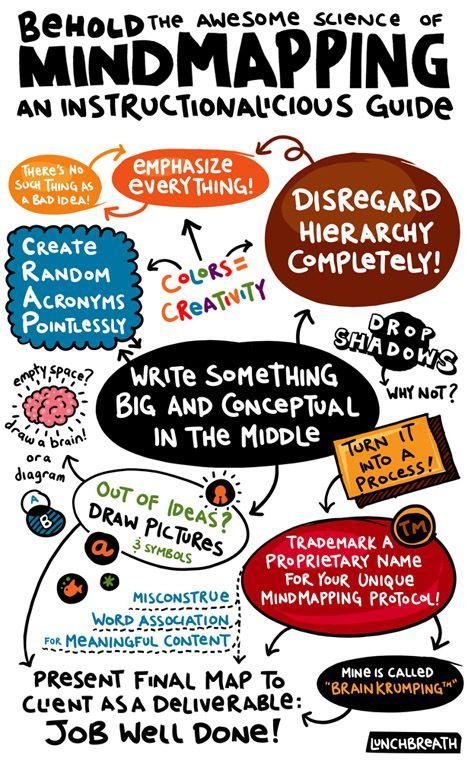 BEHOLD THE AWESOME SCIENCE OF
MINDMAPPING
AN INSTRUCTIONALICIOUS GUIDE
THERE'S NO
SUCH THING AS
A BAD IDEA!
EMPHASIZE
EVERYTHING!
DISREGARD
HIERARCHY
COMPLETELY!
CREATE
RANDOM
ACRONYMS
POINTLESSLY
COLORS =
CREATIVITY
DROP
SHADOWS
WHY NOT?
WRITE SOMETHING
BIG AND CONCEPTUAL
IN THE MIDDLE
empty space?
draw a brain!
or a
diagram
A
B
TURN IT
INTO A
PROCESS!
OUT OF IDEAS?
DRAW PICTURES
& SYMBOLS
a
*
TM
TRADEMARK A
PROPRIETARY NAME
FOR YOUR UNIQUE
MINDMAPPING PROTOCOL!
MISCONSTRUE
WORD ASSOCIATION
FOR MEANINGFUL CONTENT
PRESENT FINAL MAP TO
CLIENT AS A DELIVERABLE:
JOB WELL DONE!
MINE IS CALLED
"BRAINKRUMPING™"
LUNCHBREATH